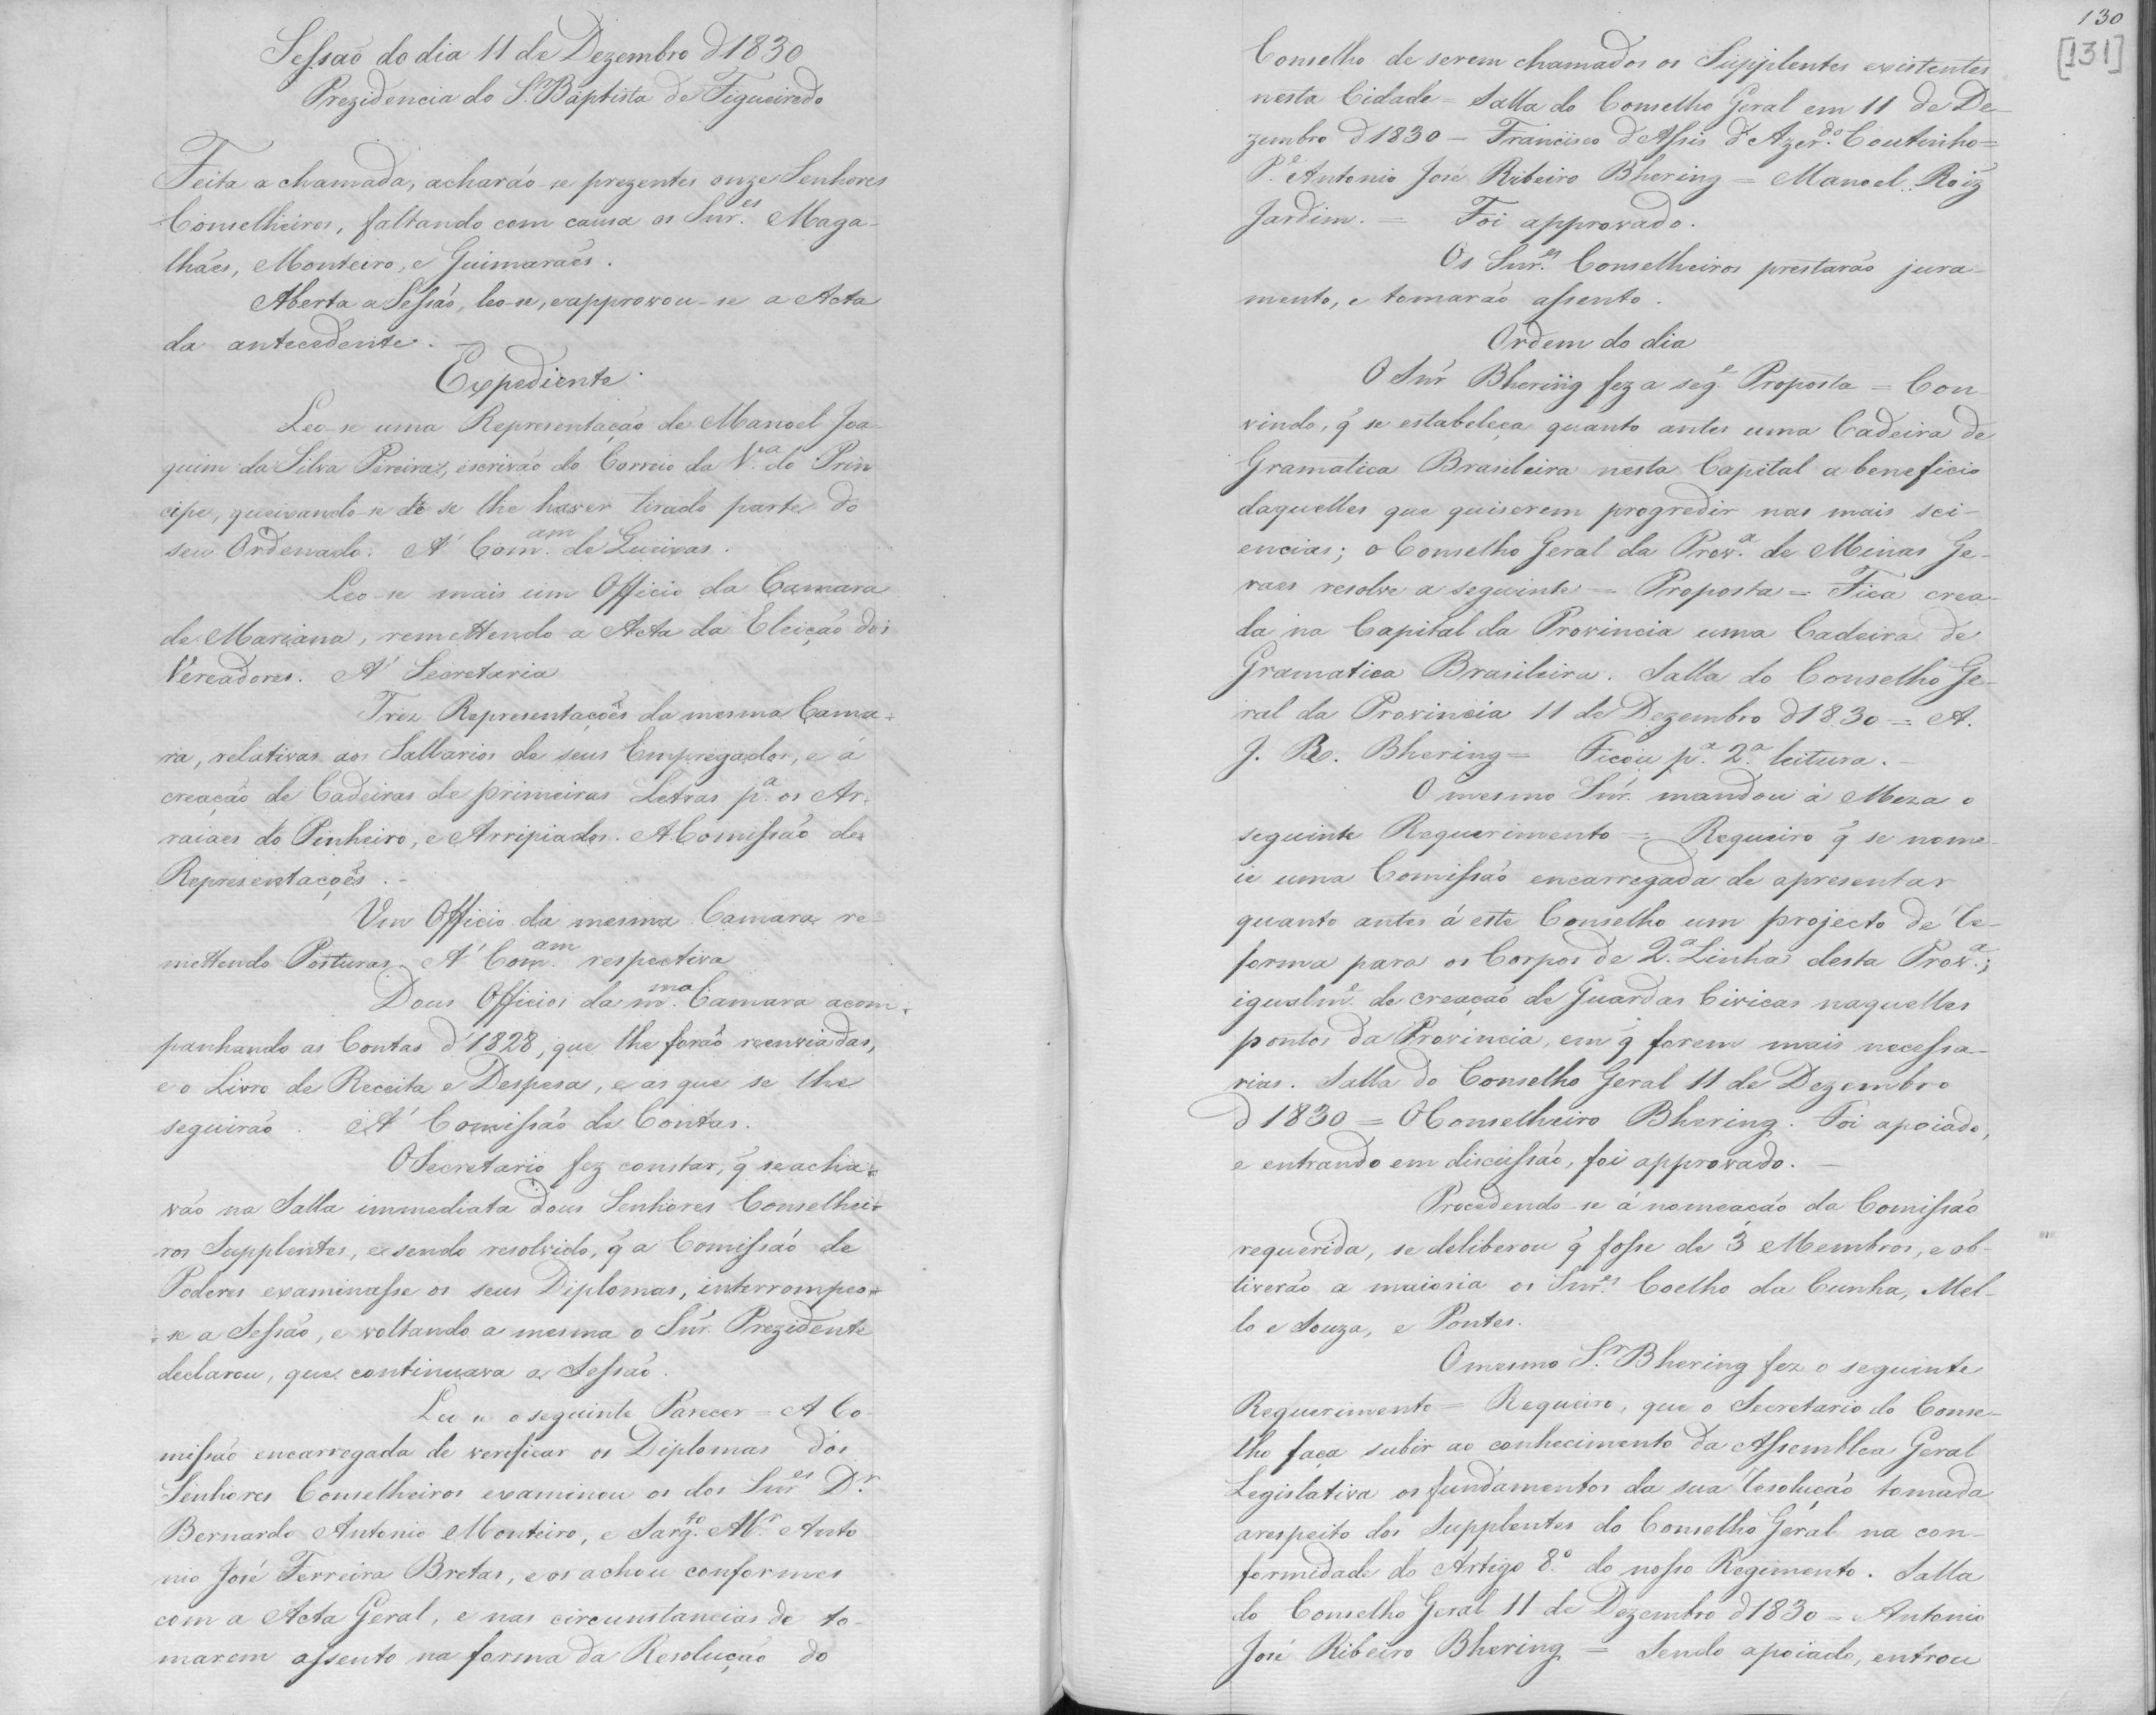 Sessaõ do dia 11 de Dezembro d'1830
Prezidencia do S.r Baptista de Figueiredo
Feita a chamada, acharão-se prezentes onze Senhores
Conselheiros, faltando com causa os Snr.es Maga-
lhães, Monteiro, e Guimaraẽs.
Aberta a Sessão, leo-se, e approvou-se a Acta
da antecedente.
Expediente.
Leo-se uma Representação de Manoel Joa-
quim da Silva Pereira, escrivão do Correio da V.a do Prin
cipe, queixando-se de se lhe haver tirado parte do
seu Ordenado. A' Com.am de Queixas.
Leo-se mais um Officio da Camara
de Mariana, remettendo a Acta da Eleição dos
Vereadores. A' Secretaria
Trez Representaçoẽs da mesma Cama-
ra, relativas aos Sallarios de seus Empregados, e á
creação de Cadeiras de primeiras Letras p.a os Ar-
raiaes do Pinheiro, e Arripiados. A Comissão de
Representaçoẽs.-
Um Officio da mesma Camara re-
mettendo Posturas A' Com.am respectiva
Dous Officios da m.ma Camara acom-
panhando as Contas d'1828, que lhe forão reenviadas,
e o Livro de Receita e Despesa, e as que se lhe
seguirão. A' Comissão de Contas.
O Secretario fez constar, q̃ se acha-
vão na Salla immediata dous Senhores Conselhei-
ros Supplentes, e sendo resolvido, q̃ a Comissão de
Poderes examinasse os seus Diplomas, interrompeo-
-se a Sessão, e voltando a mesma o Snr. Prezidente
declarou, que continuava a Sessão.
Leu se o seguinte Parecer = A Co-
missão encarregada de verificar os Diplomas dos
Senhores Conselheiros examinou os dos Snr.es D.r
Bernardo Antonio Monteiro, e Sarg.to M.r Anto
nio José Ferreira Bretas, e os achou conformes
com a Acta Geral, e nas circunstancias de to-
marem assento na forma da Resolução do
130
[131]
Conselho de serem chamados os Supplentes existentes
nesta Cidade = Salla do Conselho Geral em 11 de De-
zembro d'1830 = Francisco d'Assis d'Azer.do Coutinho=
P.e Antonio José Ribeiro Bhering = Manoel Roiz
Jardim. = Foi approvado.
Os Snr.es Conselheiros prestarão jura-
mento, e tomarão assento.
Ordem do dia
O Snr Bhering fez a seg.e Proposta = Con-
vindo, q̃ se estabeleça quanto antes uma Cadeira de
Gramatica Brasileira nesta Capital a beneficio
daquelles que quiserem progredir nas mais sci-
encias; o Conselho Geral da Prov.a de Minas Ge-
raes resolve a seguinte = Proposta = Fica crea-
da na Capital da Provincia uma Cadeira de
Gramatica Brasileira. Salla do Conselho Ge-
ral da Provincia 11 de Dezembro d'1830 = A.
J. R. Bhering = Ficou p.a 2.a leitura.-
O mesmo Snr. mandou á Meza o
seguinte Requerimento = Requeiro q̃ se nome-
ie uma Comissão encarregada de apresentar
quanto antes á este Conselho um projecto de re-
forma para os Corpos de 2.a Linha desta Prov.a;
igualm.e de creação de Guardas Civicas naquelles
pontos da Provincia, em q̃ forem mais necessa-
rias. Salla do Conselho Geral 11 de Dezembro
d'1830 = O Conselheiro Bhering. Foi apoiado,
e entrando em discussão, foi approvado.-
Procedendo-se á nomeação da Comissão
requerida, se deliberou q̃ fosse de 3 Membros, e ob-
tiverão a maioria os Snr.es Coelho da Cunha, Mel-
lo e Souza, e Pontes.
O mesmo S.r Bhering fez o seguinte
Requerimento = Requeiro, que o Secretario do Conse-
lho faça subir ao conhecimento da Assemblea Geral
Legislativa os fundamentos da sua resolução tomada
arespeito dos Supplentes do Conselho Geral na con-
formidade do Artigo 8.o do nosso Regimento. Salla
do Conselho Geral 11 de Dezembro d'1830 = Antonio
José Ribeiro Bhering = Sendo apoiado, entrou